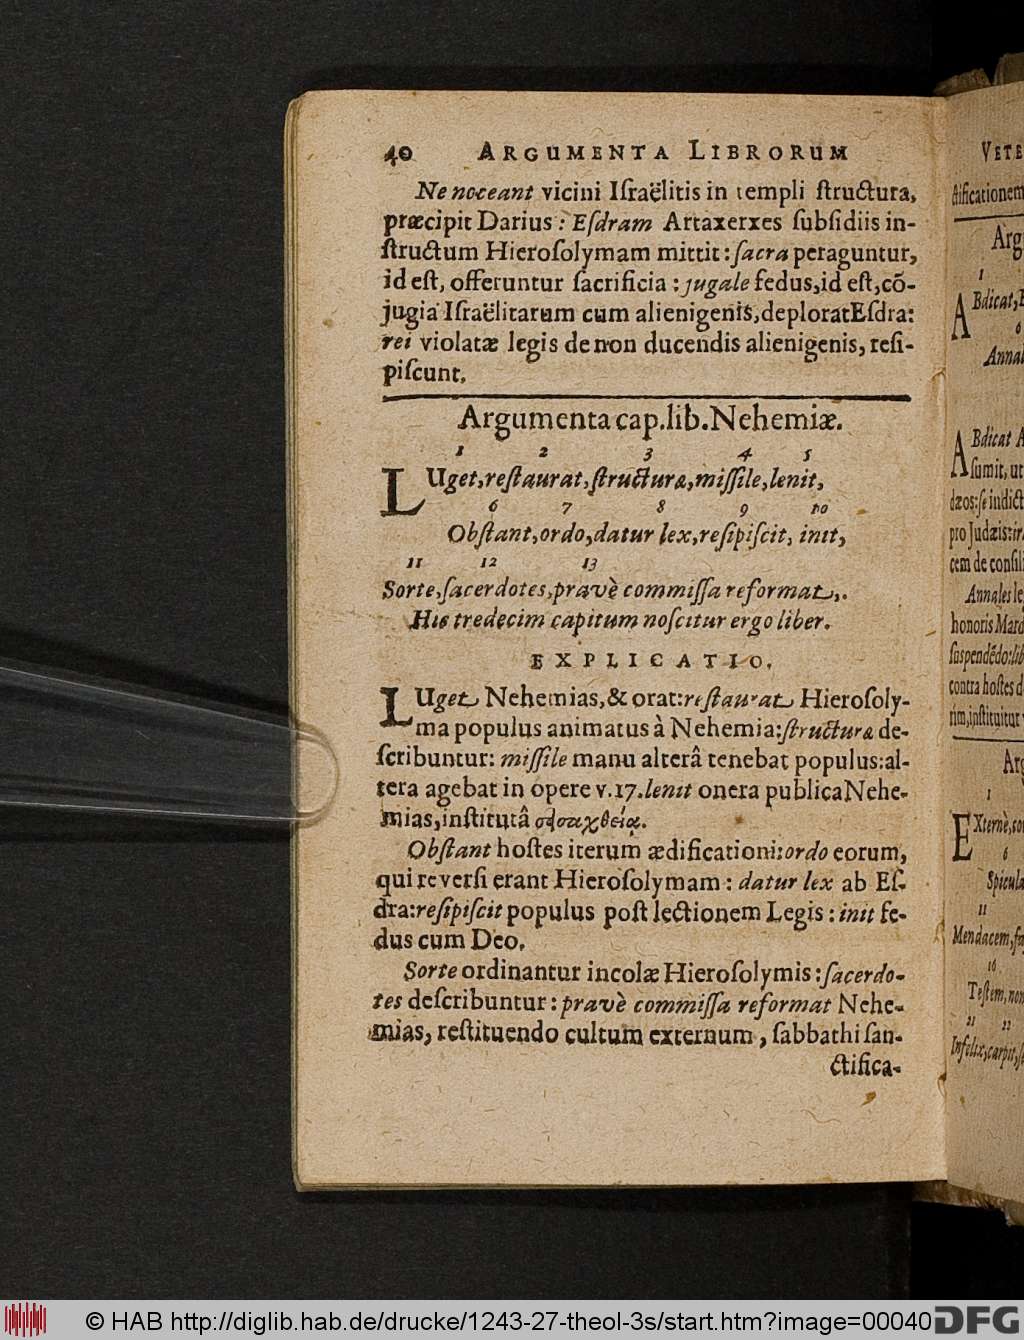 40 ARGUMENTA LIBRORUM
Ne noceant vicini Iſraëlitis in templi ſtructura,
præcipit Darius: Eſdram Artaxerxes ſubſidiis in-
ſtructum Hieroſolymam mittit: ſacra peraguntur,
id eſt, offeruntur ſacrificia: jugale fedus, id eſt, cõ-
jugia Iſraëlitarum cum alienigenis, deplorat Eſdra:
rei violatæ legis de non ducendis alienigenis, reſi-
piſcunt.
Argumenta cap. lib. Nehemiæ.
1 2 3 4 5
LUget, reſtaurat, ſtructuræ, miſſile, lenit,
6 7 8 9 10
Obſtant, ordo, datur lex, reſipiſcit, init,
11 12 13
Sorte, ſacerdotes, pravè commiſſa reformat,.
His tredecim capitum noſcitur ergo liber.
EXPLICATIO.
LUget Nehemias, & orat: reſtaurat Hieroſoly-
ma populus animatus à Nehemia: ſtructuræ de-
ſcribuntur: miſſile manu alterâ tenebat populus: al-
tera agebat in opere v. 17. lenit onera publica Nehe-
mias, inſtitutâ σεισαχθείᾳ.
Obſtant hoſtes iterum ædificationi: ordo eorum,
qui reverſi erant Hieroſolymam: datur lex ab Eſ-
dra: reſipiſcit populus poſt lectionem Legis: init fe-
dus cum Deo.
Sorte ordinantur incolæ Hieroſolymis: ſacerdo-
tes deſcribuntur: pravè commiſſa reformat Nehe-
mias, reſtituendo cultum externum, ſabbathi ſan-
ctifica-
VETE
ctificationem
Arg
1
ABdicat, E
6
Annal
ABdicat A
ſumit, ut
dæos: ſe indict
pro Judæis: ir
cem de conſili
Annales le
honoris Mard
ſuſpendẽdo: lib
contra hoſtes d
rim, inſtituitur
Arg
1
EXternè, con
6
Spicula
11
Mendacem,
16
Teſtem, non
21 22
Infelix, carpit,
© HAB http://diglib.hab.de/drucke/1243-27-theol-3s/start.htm?image=00040
DFG